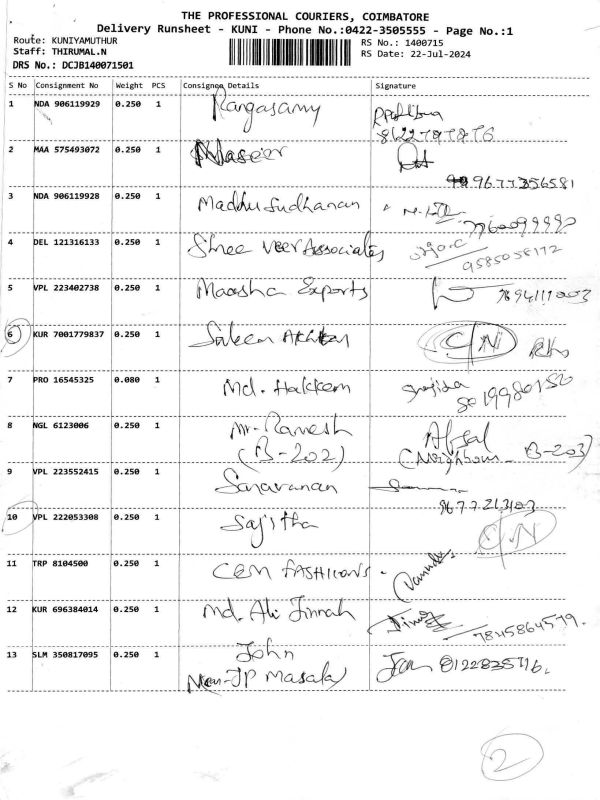 THE PROFESSIONAL COURIERS, COIMBATORE
Delivery Runsheet - KUNI - Phone No.:0422-3505555 - Page No.:1
Route: KUNIYAMUTHUR RS No.: 1400715
Staff: THIRUMAL.N RS Date: 22-Jul-2024
DRS No.: DCJB140071501
S No Consignment No Weight PCS Consignee Details Signature
1 NDA 906119929 0.250 1 Rangasamy
2 MAA 575493072 0.250 1 Naseer
9677356581
3 NDA 906119928 0.250 1 Madhusudhanan
4 DEL 121316133 0.250 1 Shree Veer Associates
9585058172
5 VPL 223402738 0.250 1 Maasha Exports
6 KUR 7001779837 0.250 1 C/N
7 PRO 16545325 0.080 1 Md. Hakkem
8019980150
8 NGL 6123006 0.250 1 Mr. Ramesh Afsal
(B-202) (Neighbour - B-203)
9 VPL 223552415 0.250 1 Saravanan
10 VPL 222053308 0.250 1 Sajitha C/N
11 TRP 8104500 0.250 1 CEM FASHIONS.
12 KUR 696384014 0.250 1 Md. Ali Jinnah
7845864579.
13 SLM 350817095 0.250 1 John
JP Masala
2